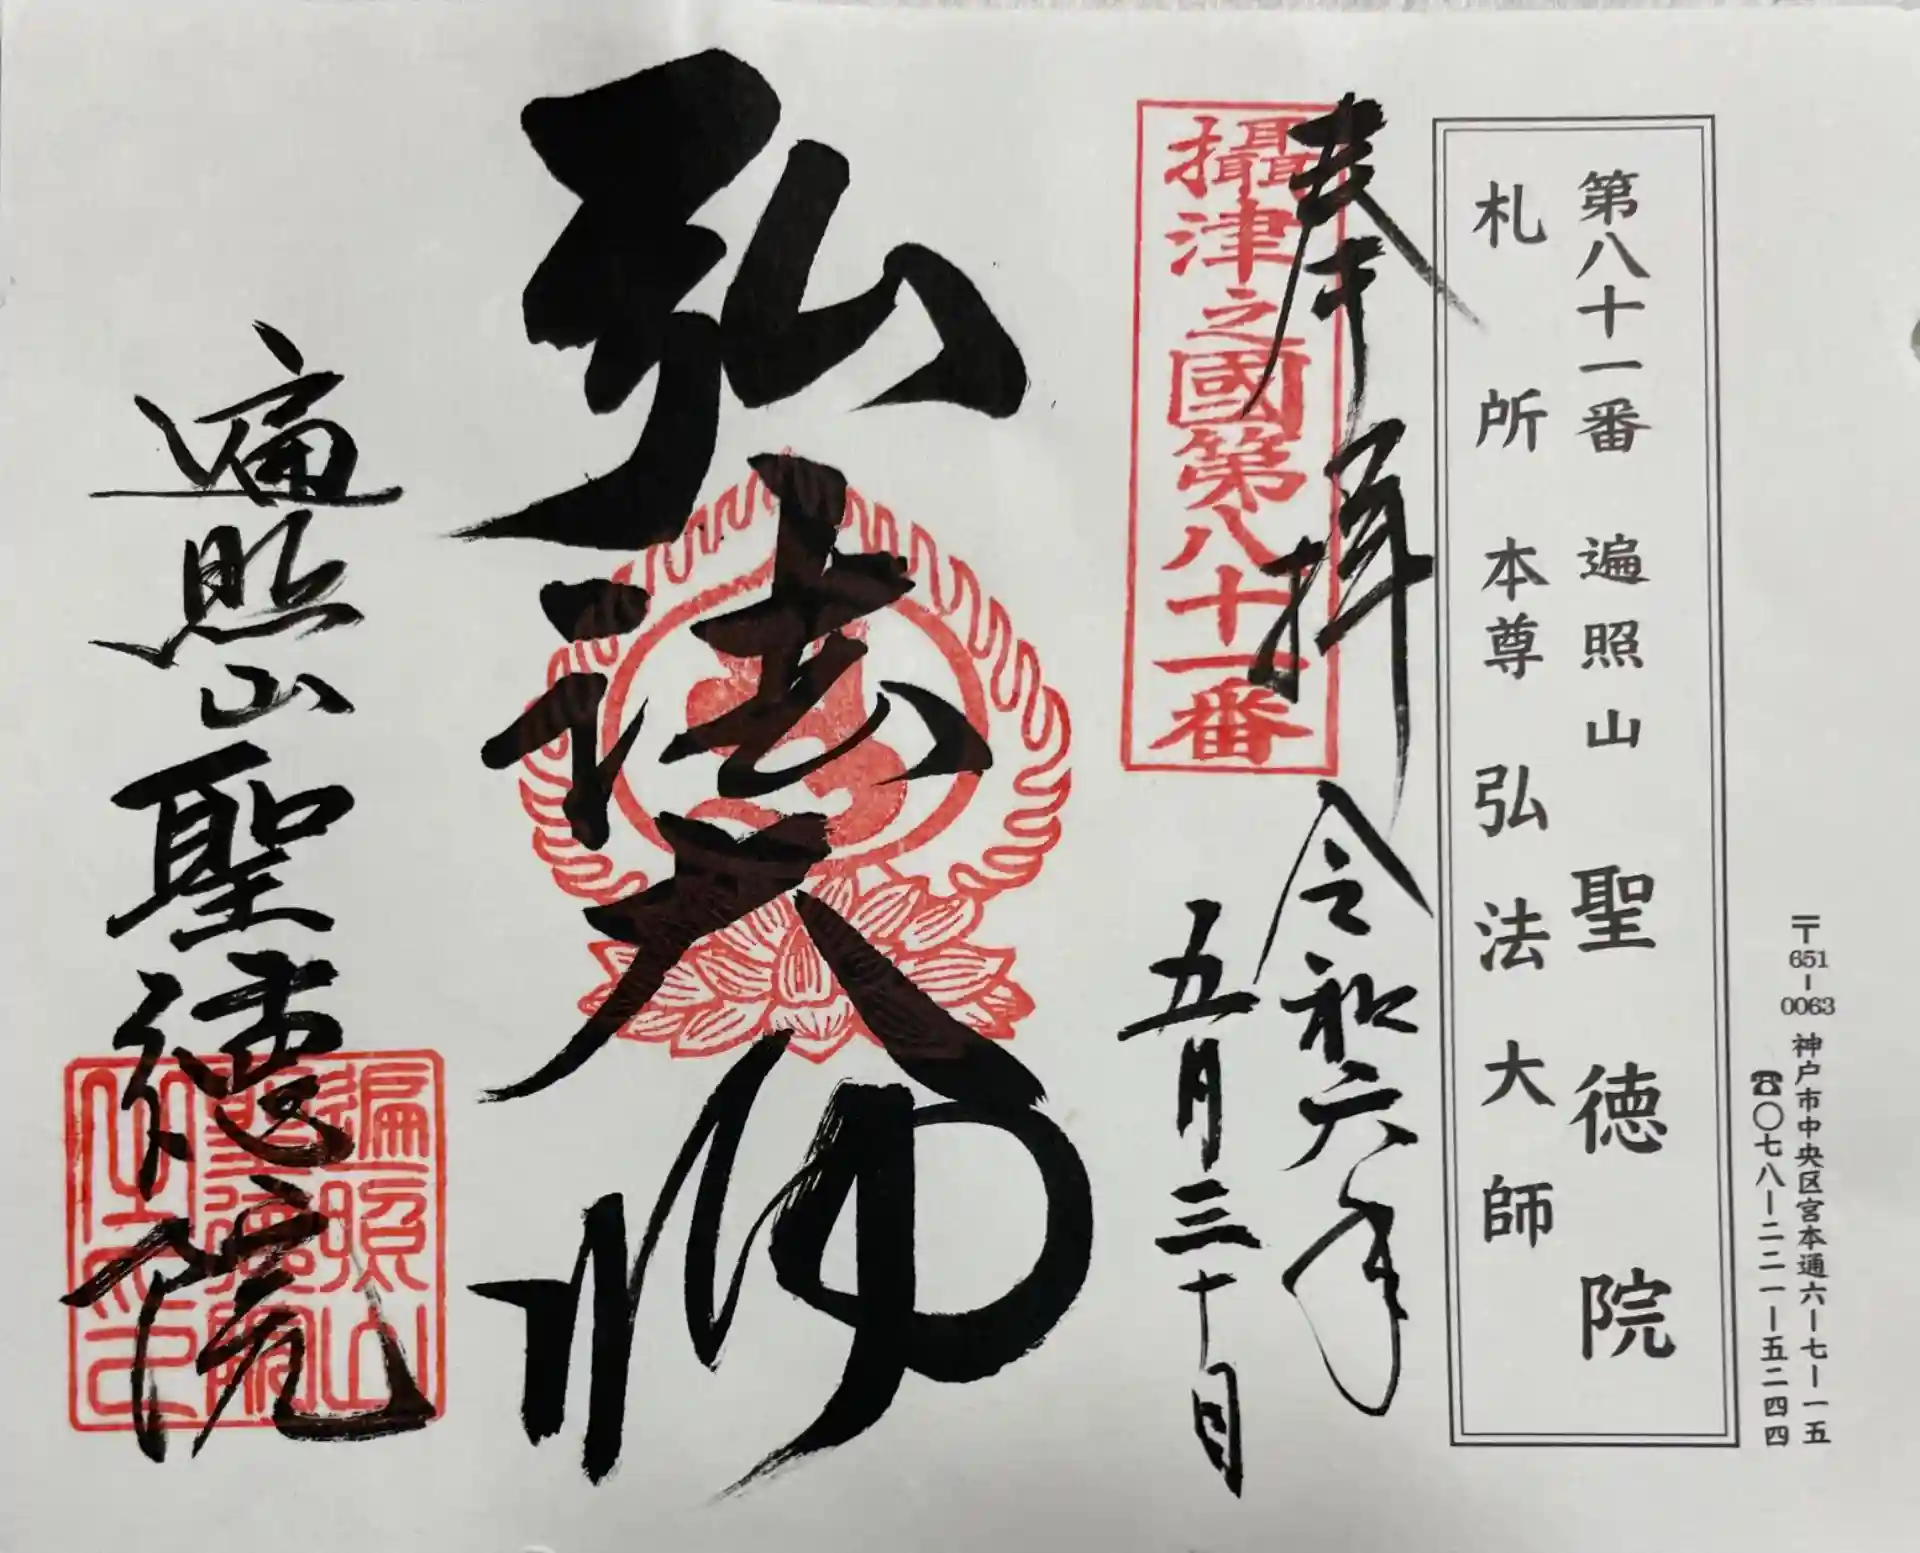 〒651-0063 神戸市中央区宮本通六ー七ー一五
☎〇七八ー二二一ー五二四四
第八十一番 遍照山 聖徳院
札所本尊 弘法大師
奉拝 令和六年
攝津之國第八十一番
五月三十日
弘法大師
遍照山聖德院
遍照山